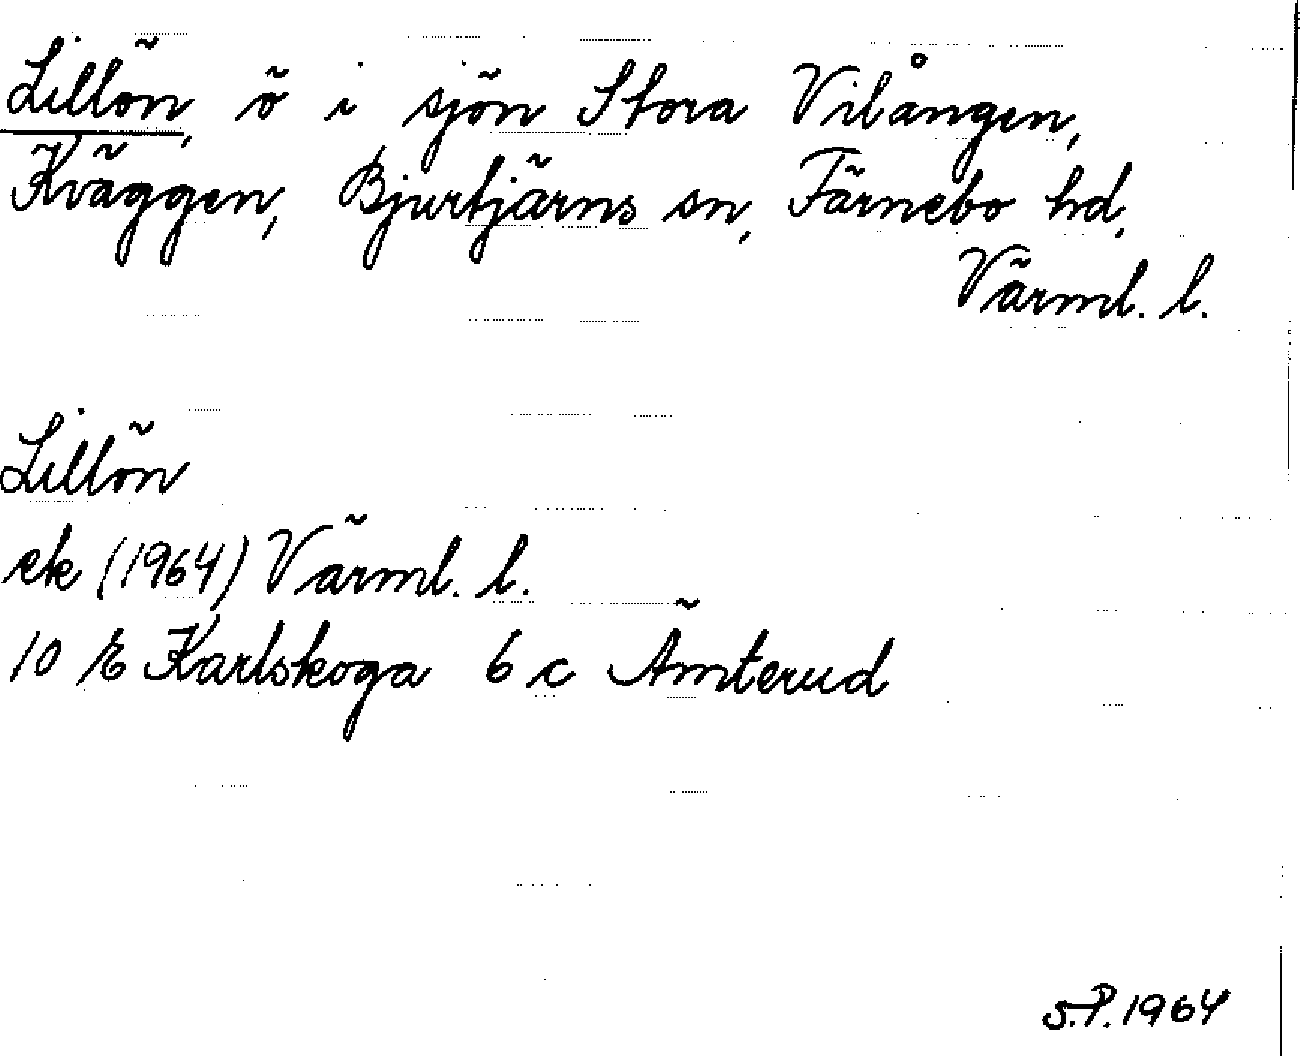 Lillön, ö i sjön Stora Vilången,
Kväggen, Bjurtjärns sn, Färnebo hd,
Värml. l.
Lillön
ek (1964) Värml. l.
10 E Karlskoga 6 c Ämterud
S.P. 1964